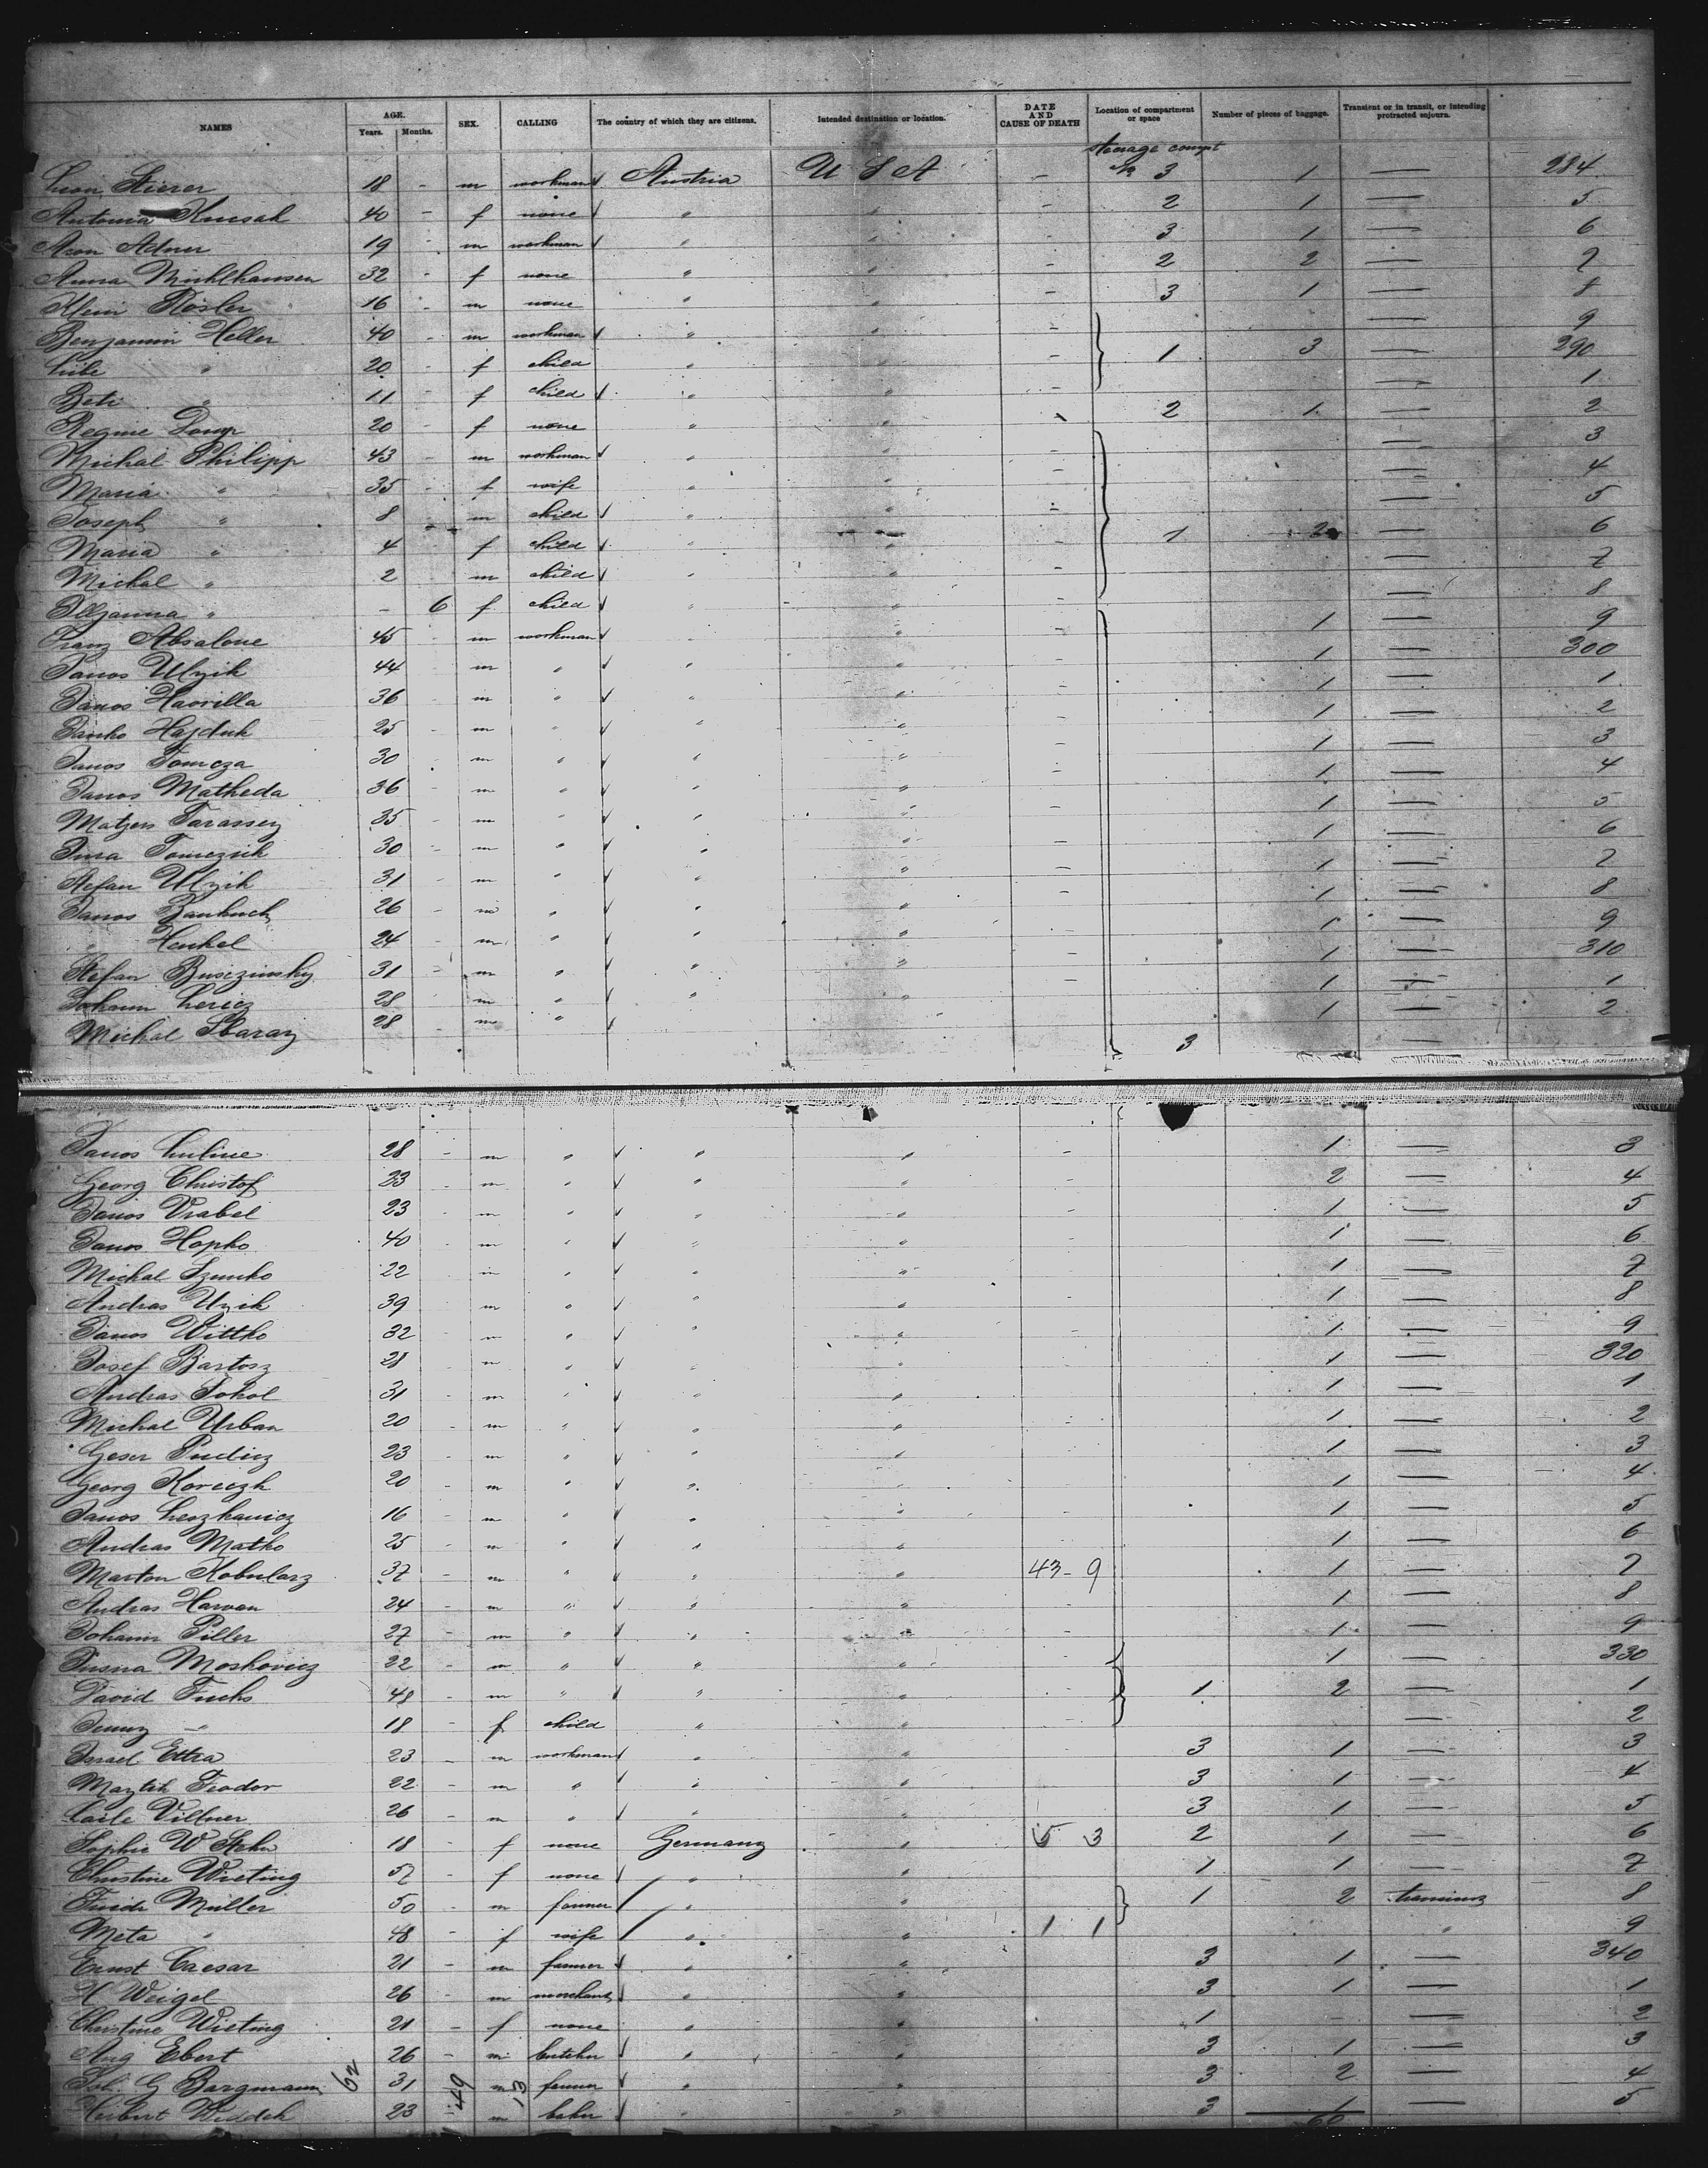 NAMES AGE. Years. Months. SEX. CALLING The country of which they are citizens. Intended destination or location. DATE AND CAUSE OF DEATH Location of compartment or space Number of pieces of baggage. Transient or in transit, or intending protracted sojourn.
steerage compt
Leon Stierer 18 - m workman Austria U S A - No 3 1 — 284
Antonia Knusak 40 - f none " " - 2 1 — 5
Aron Adner 19 - m workman " " - 3 1 — 6
Anna Muhlhausen 32 - f none " " - 2 2 — 7
Klein Rösler 16 - m none " " - 3 1 — 8
Benjamin Heller 40 - m workman " " - — 9
Libe " 20 - f child " " - 1 3 — 290
Beti " 11 - f child " " - — 1
Regine 20 - f none " " - 2 1 — 2
Michal Philipp 43 - m workman " " - — 3
Maria " 35 - f wife " " - — 4
Joseph " 8 - m child " " - — 5
Maria " 4 f child " " 1 2 — 6
Michal " 2 m child " " - — 7
" - 6 f child " " - — 8
Franz Absalone 45 - m workman " " - 1 — 9
Janos Ulyik 44 - m " " " - 1 — 300
Janos Havrilla 36 - m " " " - 1 — 1
Janko Hajduk 25 - m " " " - 1 — 2
Janos Tomcza 30 - m " " " - 1 — 3
Janos Matheda 36 - m " " " - 1 — 4
Matyas Tarassey 35 - m " " " - 1 — 5
Jura Tomczik 30 - m " " " - 1 — 6
Stefan Ulyik 31 - m " " " - 1 — 7
Janos 26 - m " " " - 1 — 8
" Henkel 24 - m " " " - 1 — 9
Stefan Busczinsky 31 - m " " " - 1 — 310
Johann 28 - m " " " - 1 — 1
Michal Sbaray 28 - m " 3 1 — 2
Janos 28 - m " " " - 1 — 3
Georg Christof 33 - m " " " - 2 — 4
Janos Vrabel 23 - m " " " - 1 — 5
Janos Hopko 40 - m " " " 1 — 6
Michal Szunko 22 - m " " " 1 — 7
Andras Uyik 39 - m " " " 1 — 8
Janos Wittko 32 - m " " " 1 — 9
Josef Bartosz 28 - m " " " 1 — 320
Andras Sokol 31 - m " " " 1 — 1
Michal Urban 20 - m " " " - 1 — 2
23 - m " " " - 1 — 3
Georg Koreczk 20 - m " " " 1 — 4
Janos Leszkavicz 16 - m " " " - 1 — 5
Andras Matko 25 - m " " " - 1 — 6
Marton Kobularz 37 - m " " " 43-9 1 — 7
Andras Harvan 24 - m " " " - 1 — 8
Johann Piller 27 - m " " " - 1 — 9
Moskovicz 22 - m " " " - 1 — 330
David Fuchs 48 - m " " " - 1 2 — 1
Jenny " 18 - f child " " - — 2
Israel Ettra 23 - m workman " " - 3 1 — 3
Feodor 22 - m " " " 3 1 — 4
Villner 26 - m " " " 3 1 — 5
Sophie W 18 - f none Germany " 5 3 2 1 — 6
Christine Wieting 57 - f none " " 1 1 — 7
Friedr Müller 50 - m farmer " " 1 2 8
Meta " 48 - f wife " " 1 1 " 9
Ernst Caesar 21 - m farmer " " 3 1 — 340
H Weigel 26 - m merchant " " 3 1 — 1
Christine Wieting 21 - f none " " 1 - — 2
Aug Ebert 26 - m butcher " " 3 1 — 3
Joh. G Bargmann 31 m farmer " " 3 2 — 4
Herbert 23 m baker " " 3 1 — 5
62 49 13 60